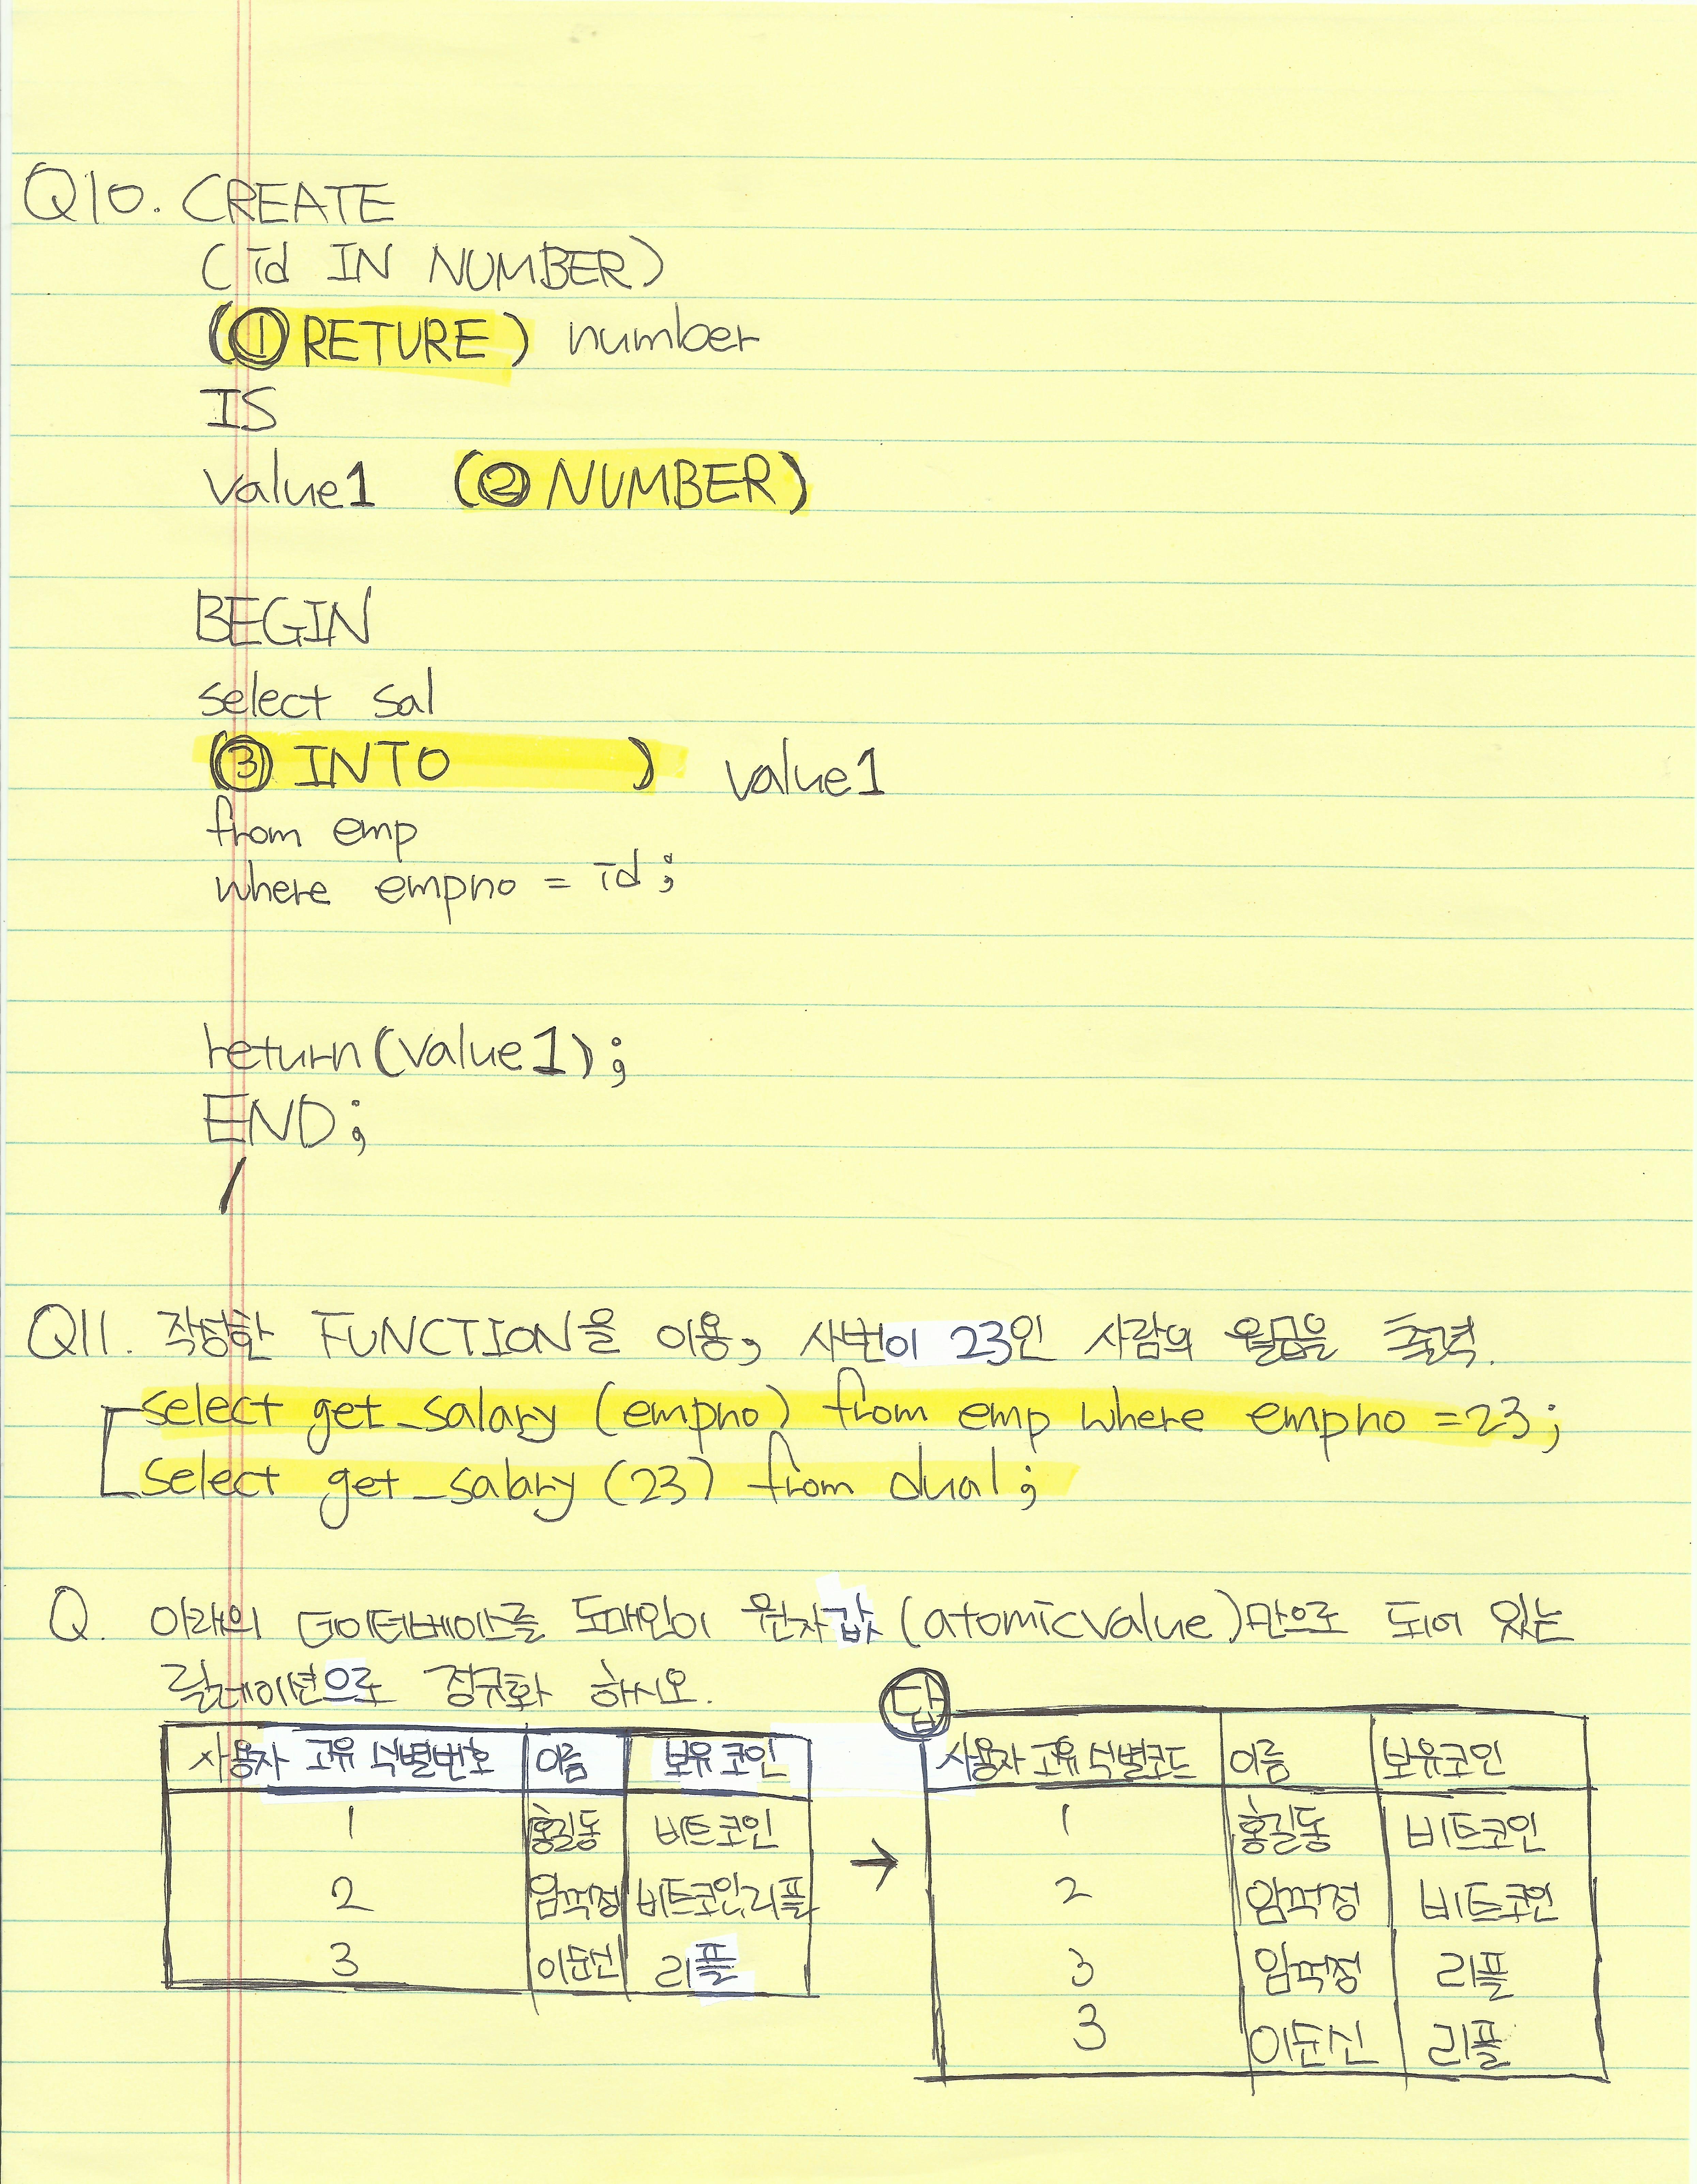 Q10. CREATE
(id IN NUMBER)
(① RETURE) number
IS
value1 (② NUMBER)
BEGIN
select sal
(③ INTO ) value1
from emp
where empno = id;
return(value1);
END;
/
Q11. 작성한 FUNCTION을 이용, 사번이 23인 사람의 월급을 출력.
select get_salary (empno) from emp where empno =23;
select get_salary (23) from dual;
Q. 아래의 데이터베이스를 도메인이 원자값 (atomicvalue)만으로 되어 있는
릴레이션으로 정규화 하시오.
사용자 고유 식별번호 이름 보유 코인
1 홍길동 비트코인
2 임꺽정 비트코인,리플
3 이순신 리플
→
답
사용자 고유 식별코드 이름 보유코인
1 홍길동 비트코인
2 임꺽정 비트코인
3 임꺽정 리플
3 이순신 리플